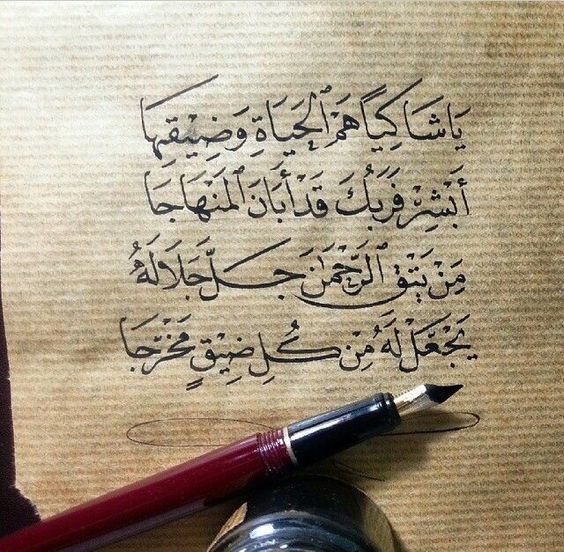 يَا شَاكِيًا هَمَّ ٱلْحَيَاةِ وَضِيْقِهَا
أَبْشِرْ فَرَبُّكَ قَدْ أَبَانَ ٱلْمَنْهَاجَا
مَنْ يَتَّقِ ٱلرَّحْمٰنَ جَلَّ جَلَالُهُ
يَجْعَلْ لَهُ مِنْ كُلِّ ضِيْقٍ مَخْرَجَا